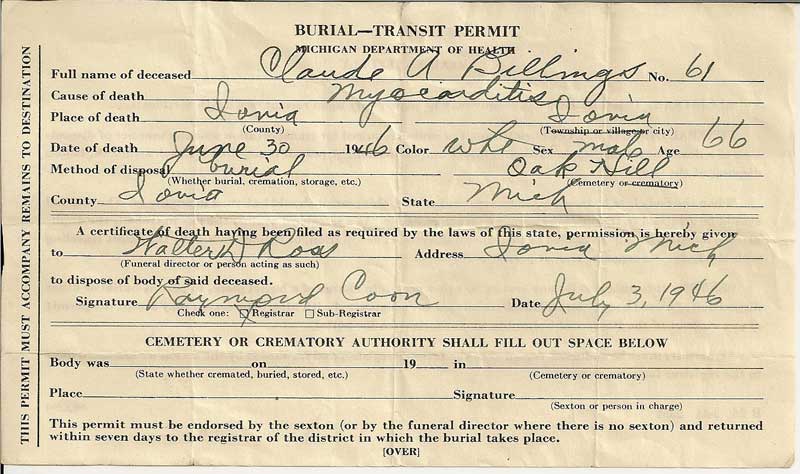 BURIAL—TRANSIT PERMIT
MICHIGAN DEPARTMENT OF HEALTH
Full name of deceased Claude A Billings No. 61
Cause of death Myocarditis
Place of death Ionia Ionia
(County) (Township or village or city)
Date of death June 30 1946 Color Wht Sex Male Age 66
Method of disposal burial Oak Hill
(Whether burial, cremation, storage, etc.) (Cemetery or crematory)
County Ionia State Mich
A certificate of death having been filed as required by the laws of this state, permission is hereby given
to Walter D Roos Address Ionia Mich
(Funeral director or person acting as such)
to dispose of body of said deceased.
Signature Raymond Coon Date July 3, 1946
Check one: Registrar Sub-Registrar
CEMETERY OR CREMATORY AUTHORITY SHALL FILL OUT SPACE BELOW
Body was on 19 in
(State whether cremated, buried, stored, etc.) (Cemetery or crematory)
Place Signature
(Sexton or person in charge)
This permit must be endorsed by the sexton (or by the funeral director where there is no sexton) and returned
within seven days to the registrar of the district in which the burial takes place.
[OVER]
THIS PERMIT MUST ACCOMPANY REMAINS TO DESTINATION